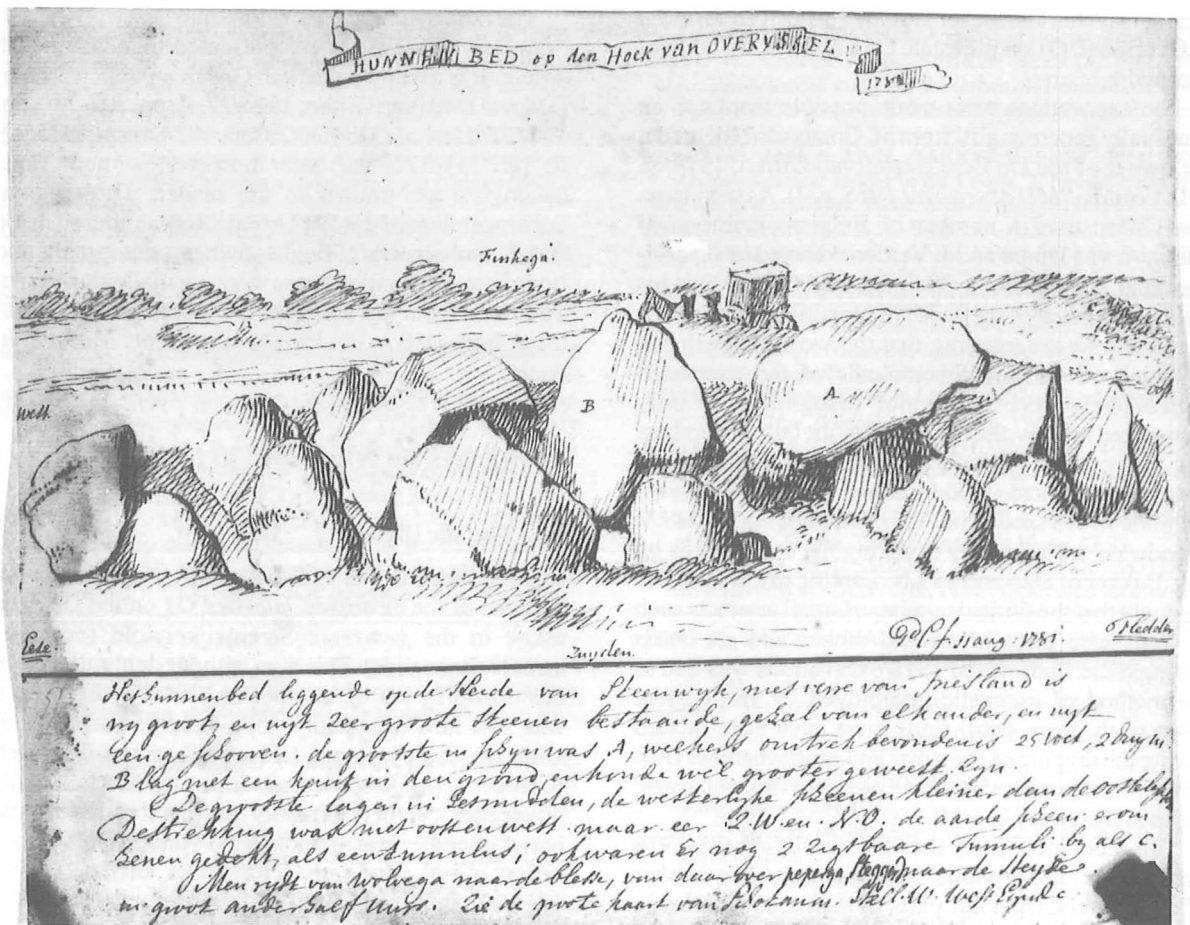 HUNNEN BED op den Hoek van OVERYSSEL
1781
Finkega.
west.
B
A
oost.
Eese
Zuyden.
11 aug. 1781.
Hedden
Het hunnenbed liggende op de Heide van Steenwyk, niet verre van Friesland is
vry groot, en uyt zeer groote Steenen bestaande, geval van elkander, en uyt
een geschooven. de grootste in schyn was A, welkers omtrek bevonden is 25 voet, 2 duym.
B lag met een kant in den grond, en konde wel grooter geweest zyn.
De grootste lagen in het midden, de westerlyke steenen kleiner dan de oostelyke
De strekking was niet oost en west. maar eer Z.W. en N.O. de aarde scheen erom
henen gedekt, als een tumulus; ook waren er nog 2 zigtbaare Tumuli by als C.
Men rydt van Wolvega naar de blesse, van daar over peperga, naar de Heyde
in groot anderhalf uur. Zie de groote kaart van Schotanus. Stell. W. West Einde